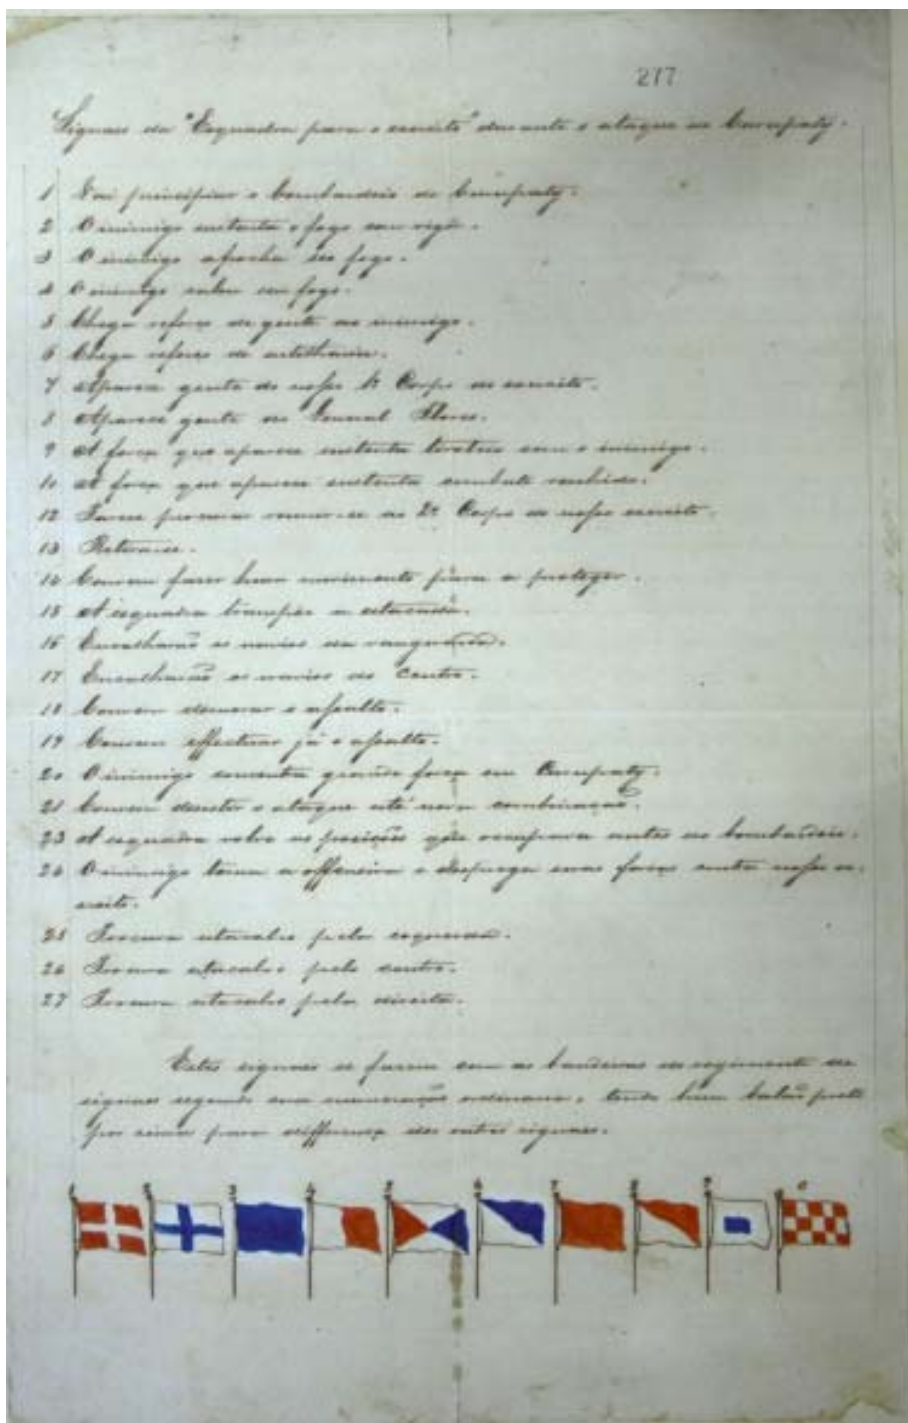 277
Signaes da "Esquadra para o exercito" durante o ataque de Curupaty.
1 Vai principiar o bombardeio de Curupaty.
2 O inimigo sustenta o fogo com vigor.
3 O inimigo afrouxa seu fogo.
4 O inimigo seu fogo.
5 Chega reforço de gente ao inimigo.
6 Chega reforço de artilharia.
7 Aparece gente do nosso 1º Corpo de exercito.
8 Aparece gente do General Flores.
9 A força que aparece sustenta tiroteio com o inimigo.
10 A força que aparece sustenta combate renhido.
12 Parece procurar reunir-se ao 2º Corpo de nosso exercito.
13 Retira-se.
14 Convem fazer hum movimento para a proteger.
15 A esquadra transpôz a estacada.
16 Encalharão os navios da vanguarda.
17 Encalharão os navios do Centro.
18 Convem demorar o assalto.
19 Convem effectuar já o assalto.
20 O inimigo concentra grande força em Curupaty.
21 Convem desistir o ataque até nova combinação.
23 A esquadra volve as posições que occupava antes do bombardeio.
24 O inimigo toma a offensiva e despega suas forças contra nosso ex-
ercito.
25 Procura atacal-o pela esquerda.
26 Procura atacal-o pelo centro.
27 Procura atacal-o pela direita.
Estes signaes se farão com as bandeiras do regimento de
signaes segundo sua numeração ordinaria, tendo hum balão preto
por cima para differença dos outros signaes.
1 2 3 4 5 6 7 8 9 0